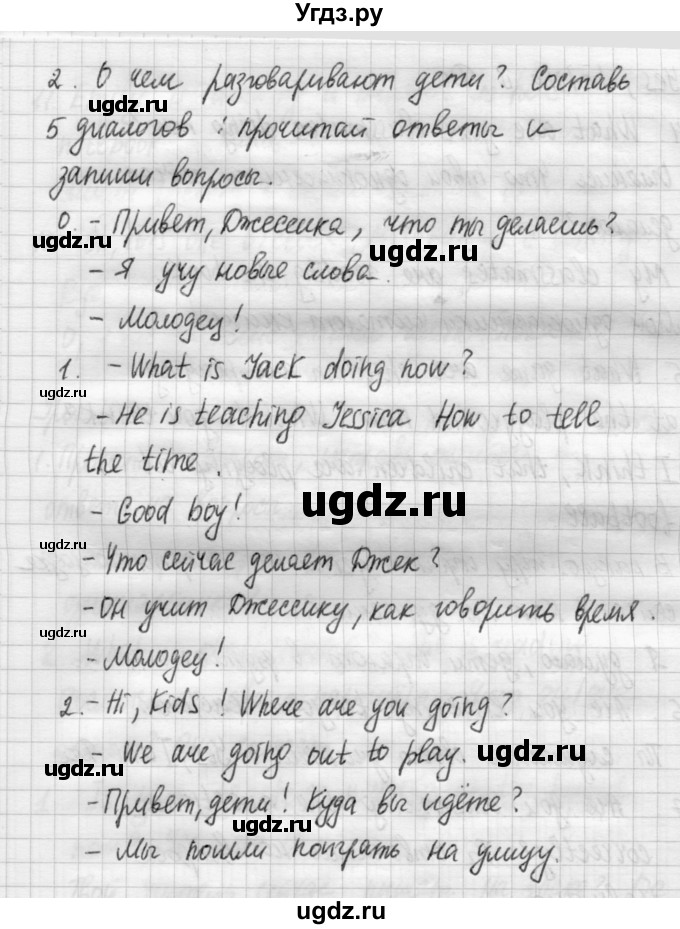 Угдз.ру
2. О чем разговаривают дети? Составь
5 диалогов: прочитай ответы и
запиши вопросы.
0. - Привет, Джессика, что ты делаешь?
- Я учу новые слова.
- Молодец!
1. - What is Jack doing now?
- He is teaching Jessica How to tell
the time.
- Good boy!
- Что сейчас делает Джек?
- Он учит Джессику, как говорить время.
- Молодец!
2. - Hi, Kids! Where are you going?
- We are going out to play.
- Привет, дети! Куда вы идёте?
- Мы пошли поиграть на улицу.
ugdz.ru
ugdz.ru
ugdz.ru
ugdz.ru
ugdz.ru
ugdz.ru
ugdz.ru
ugdz.ru
ugdz.ru
ugdz.ru
ugdz.ru
ugdz.ru